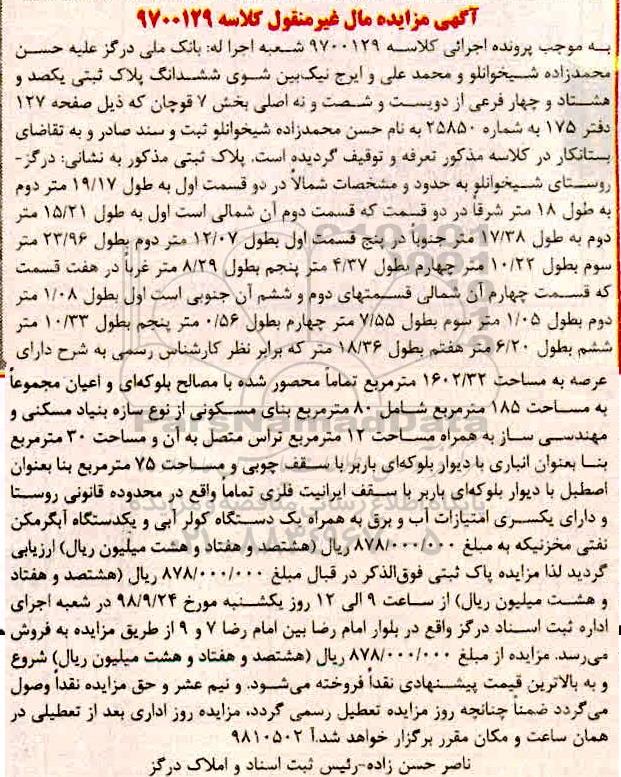 آگهی مزایده مال غیرمنقول کلاسه ۹۷۰۰۱۲۹
به موجب پرونده اجرائی کلاسه ۹۷۰۰۱۲۹ شعبه اجرا له: بانک ملی درگز علیه حسن
محمدزاده شیخوانلو و محمد علی و ایرج نیک‌بین شوی ششدانگ پلاک ثبتی یکصد و
هشتاد و چهار فرعی از دویست و شصت و نه اصلی بخش ۷ قوچان که ذیل صفحه ۱۲۷
دفتر ۱۷۵ به شماره ۲۵۸۵۰ به نام حسن محمدزاده شیخوانلو ثبت و سند صادر و به تقاضای
بستانکار در کلاسه مذکور تعرفه و توقیف گردیده است. پلاک ثبتی مذکور به نشانی: درگز-
روستای شیخوانلو به حدود و مشخصات شمالاً در دو قسمت اول به طول ۱۹/۱۷ متر دوم
به طول ۱۸ متر شرقاً در دو قسمت که قسمت دوم آن شمالی است اول به طول ۱۵/۲۱ متر
دوم به طول ۱۷/۳۸ متر جنوباً در پنج قسمت اول بطول ۱۲/۰۷ متر دوم بطول ۲۳/۹۶ متر
سوم بطول ۱۰/۲۲ متر چهارم بطول ۴/۳۷ متر پنجم بطول ۸/۲۹ متر غرباً در هفت قسمت
که قسمت چهارم آن شمالی قسمتهای دوم و ششم آن جنوبی است اول بطول ۱/۰۸ متر
دوم بطول ۱/۰۵ متر سوم بطول ۷/۵۵ متر چهارم بطول ۰/۵۶ متر پنجم بطول ۱۰/۳۳ متر
ششم بطول ۶/۲۰ متر هفتم بطول ۱۸/۳۶ متر که برابر نظر کارشناس رسمی به شرح دارای
عرصه به مساحت ۱۶۰۲/۳۲ مترمربع تماماً محصور شده با مصالح بلوکه‌ای و اعیان مجموعاً
به مساحت ۱۸۵ مترمربع شامل ۸۰ مترمربع بنای مسکونی از نوع سازه بنیاد مسکنی و
مهندسی ساز به همراه مساحت ۱۲ مترمربع تراس متصل به آن و مساحت ۳۰ مترمربع
بنا بعنوان انباری با دیوار بلوکه‌ای باربر با سقف چوبی و مساحت ۷۵ مترمربع بنا بعنوان
اصطبل با دیوار بلوکه‌ای باربر با سقف ایرانیت فلزی تماماً واقع در محدوده قانونی روستا
و دارای یکسری امتیازات آب و برق به همراه یک دستگاه کولر آبی و یکدستگاه آبگرمکن
نفتی مخزنیکه به مبلغ ۸۷۸/۰۰۰/۰۰۰ ریال (هشتصد و هفتاد و هشت میلیون ریال) ارزیابی
گردید لذا مزایده پاک ثبتی فوق‌الذکر در قبال مبلغ ۸۷۸/۰۰۰/۰۰۰ ریال (هشتصد و هفتاد
و هشت میلیون ریال) از ساعت ۹ الی ۱۲ روز یکشنبه مورخ ۹۸/۹/۲۴ در شعبه اجرای
اداره ثبت اسناد درگز واقع در بلوار امام رضا بین امام رضا ۷ و ۹ از طریق مزایده به فروش
می‌رسد. مزایده از مبلغ ۸۷۸/۰۰۰/۰۰۰ ریال (هشتصد و هفتاد و هشت میلیون ریال) شروع
و به بالاترین قیمت پیشنهادی نقداً فروخته می‌شود. و نیم عشر و حق مزایده نقداً وصول
می‌گردد ضمناً چنانچه روز مزایده تعطیل رسمی گردد، مزایده روز اداری بعد از تعطیلی در
همان ساعت و مکان مقرر برگزار خواهد شد.آ ۹۸۱۰۵۰۲
ناصر حسن زاده-رئیس ثبت اسناد و املاک درگز
ParsNamadData